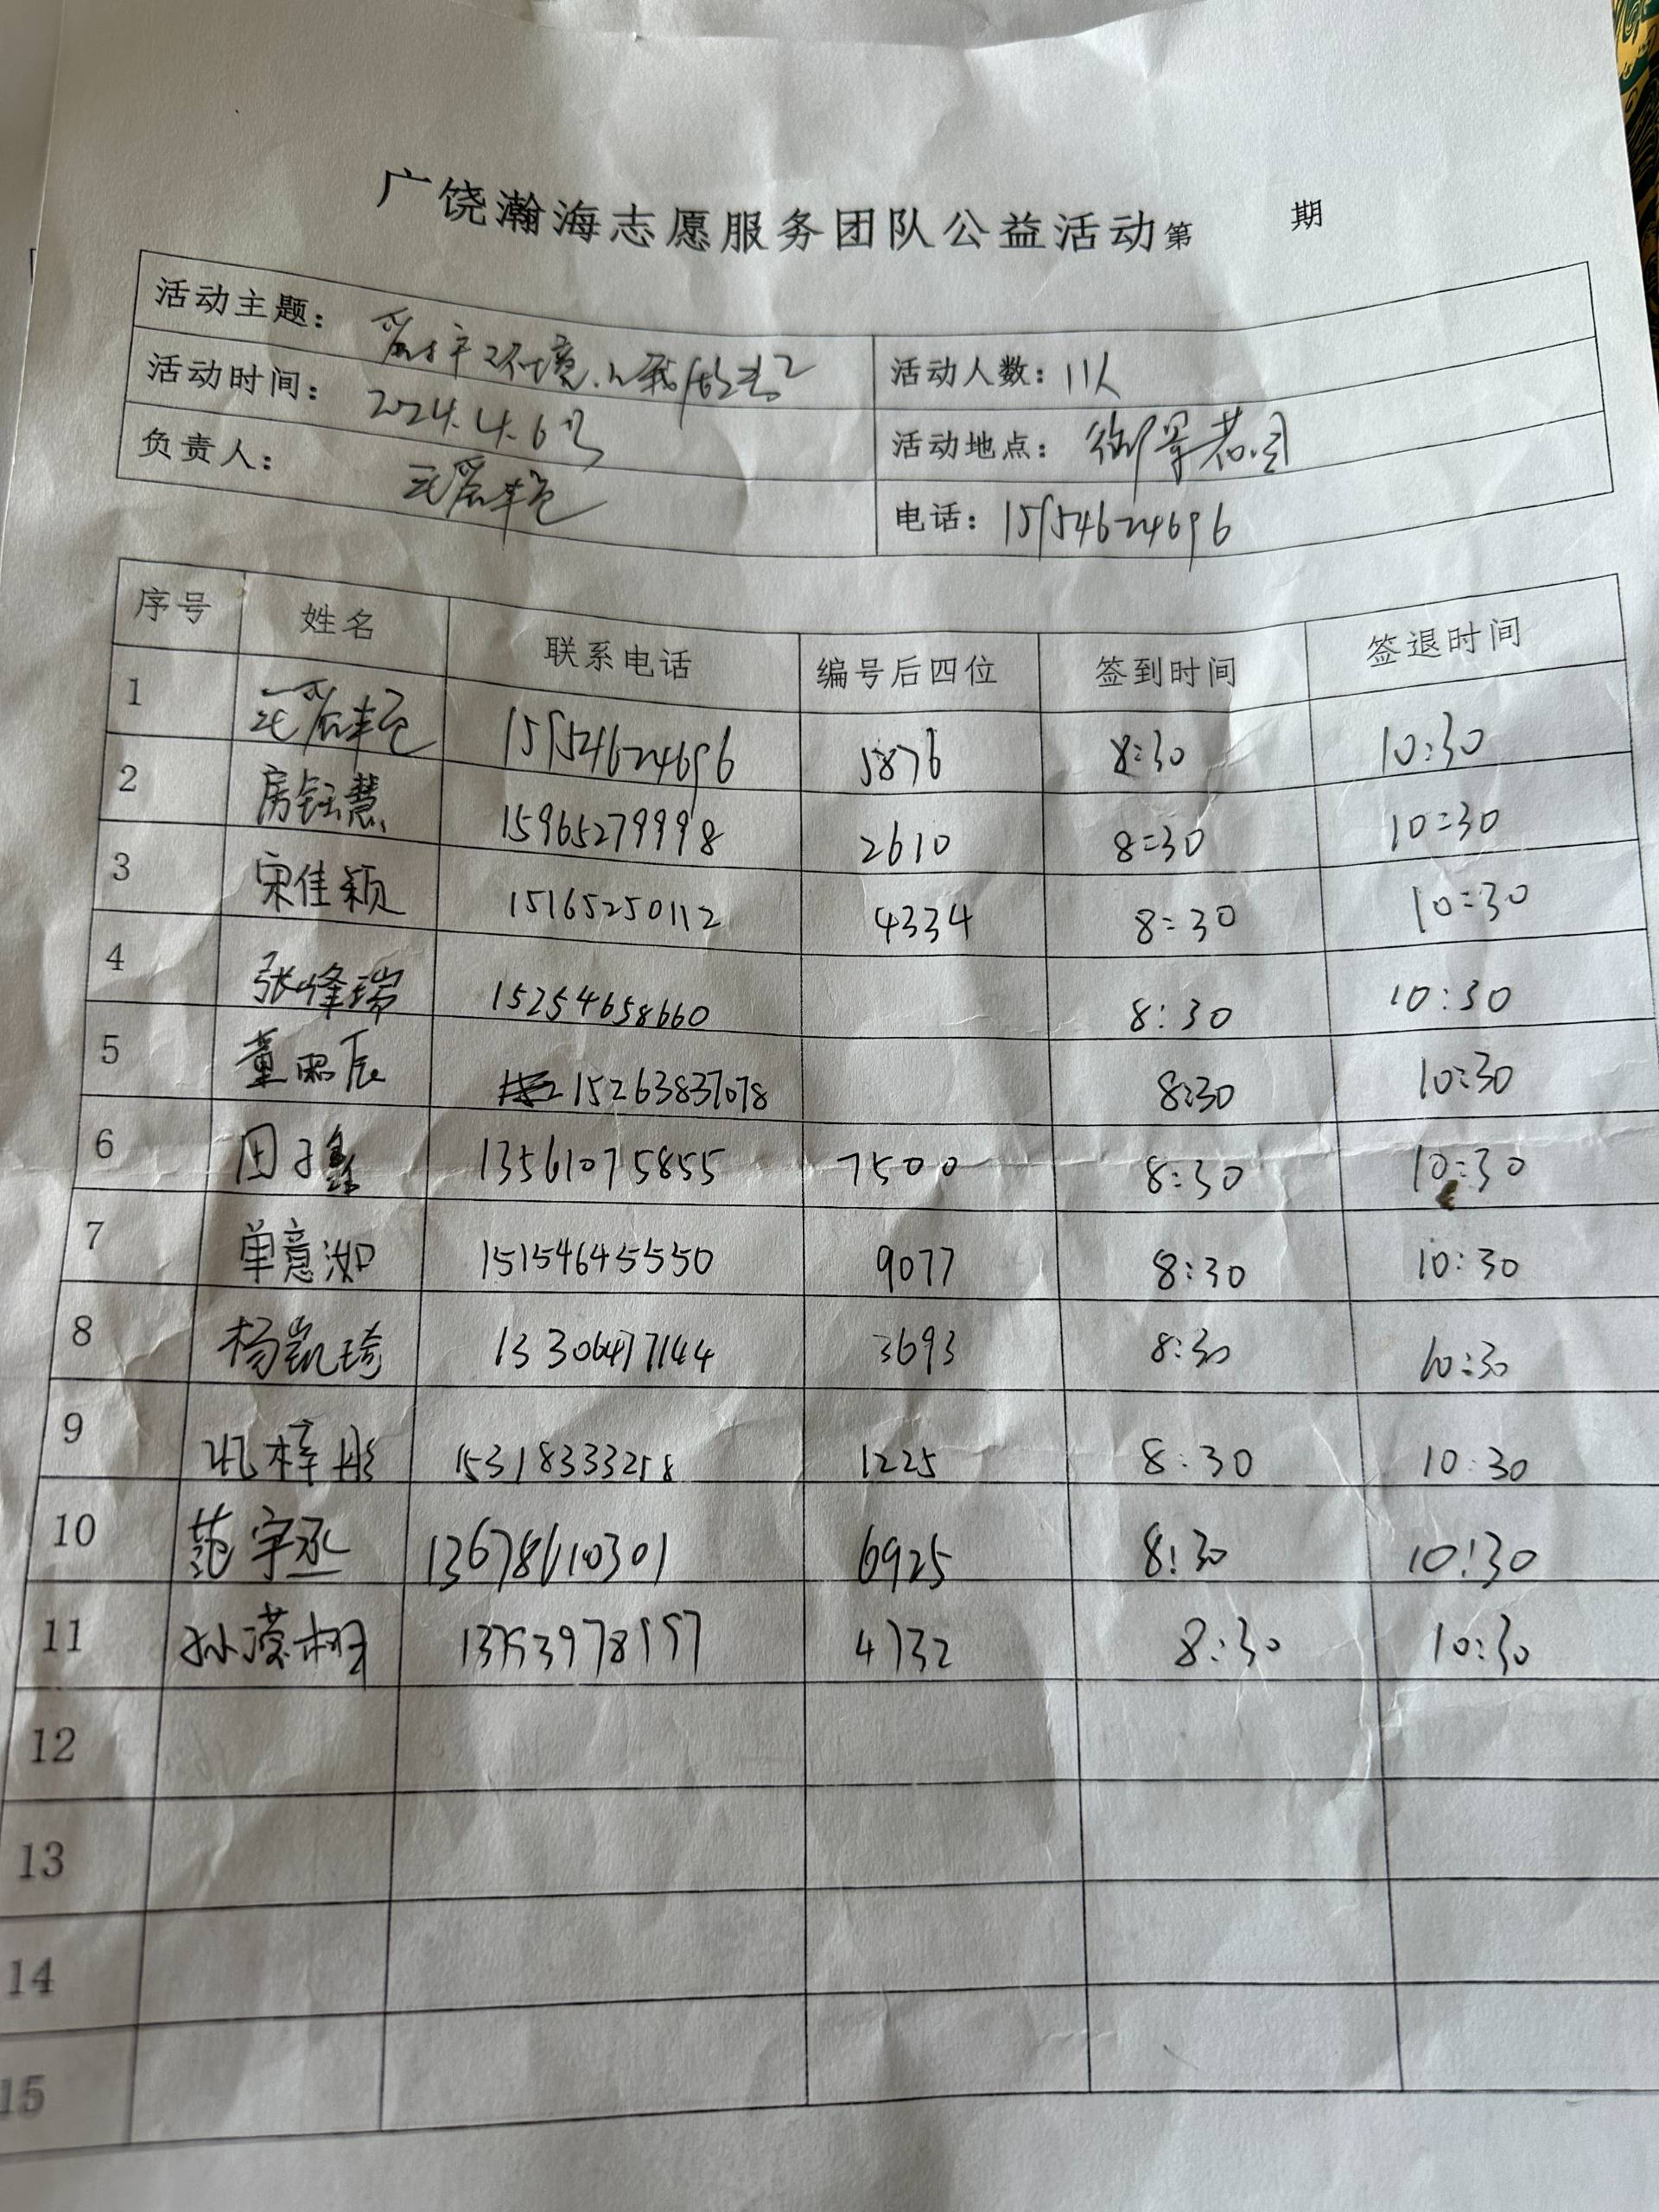 广饶瀚海志愿服务团队公益活动第 期
活动主题：爱护环境.从我做起
活动人数：11人
活动时间：2024.4.6号
活动地点：御景茗园
负责人：
电话：15154624696
序号 姓名 联系电话 编号后四位 签到时间 签退时间
1 15154624696 5876 8:30 10:30
2 房钰慧 15965279998 2610 8:30 10:30
3 宋佳颖 15165250112 4334 8:30 10:30
4 张烽瑞 15254658660 8:30 10:30
5 董熙辰 15263837078 8:30 10:30
6 田子鑫 13561075855 7500 8:30 10:30
7 单意洳 15154645550 9077 8:30 10:30
8 杨凯琦 13306417144 3693 8:30 10:30
9 梓彤 15318333258 1225 8:30 10:30
10 范宇丞 13678610301 6925 8:30 10:30
11 孙 4732 8:30 10:30
12
13
14
15